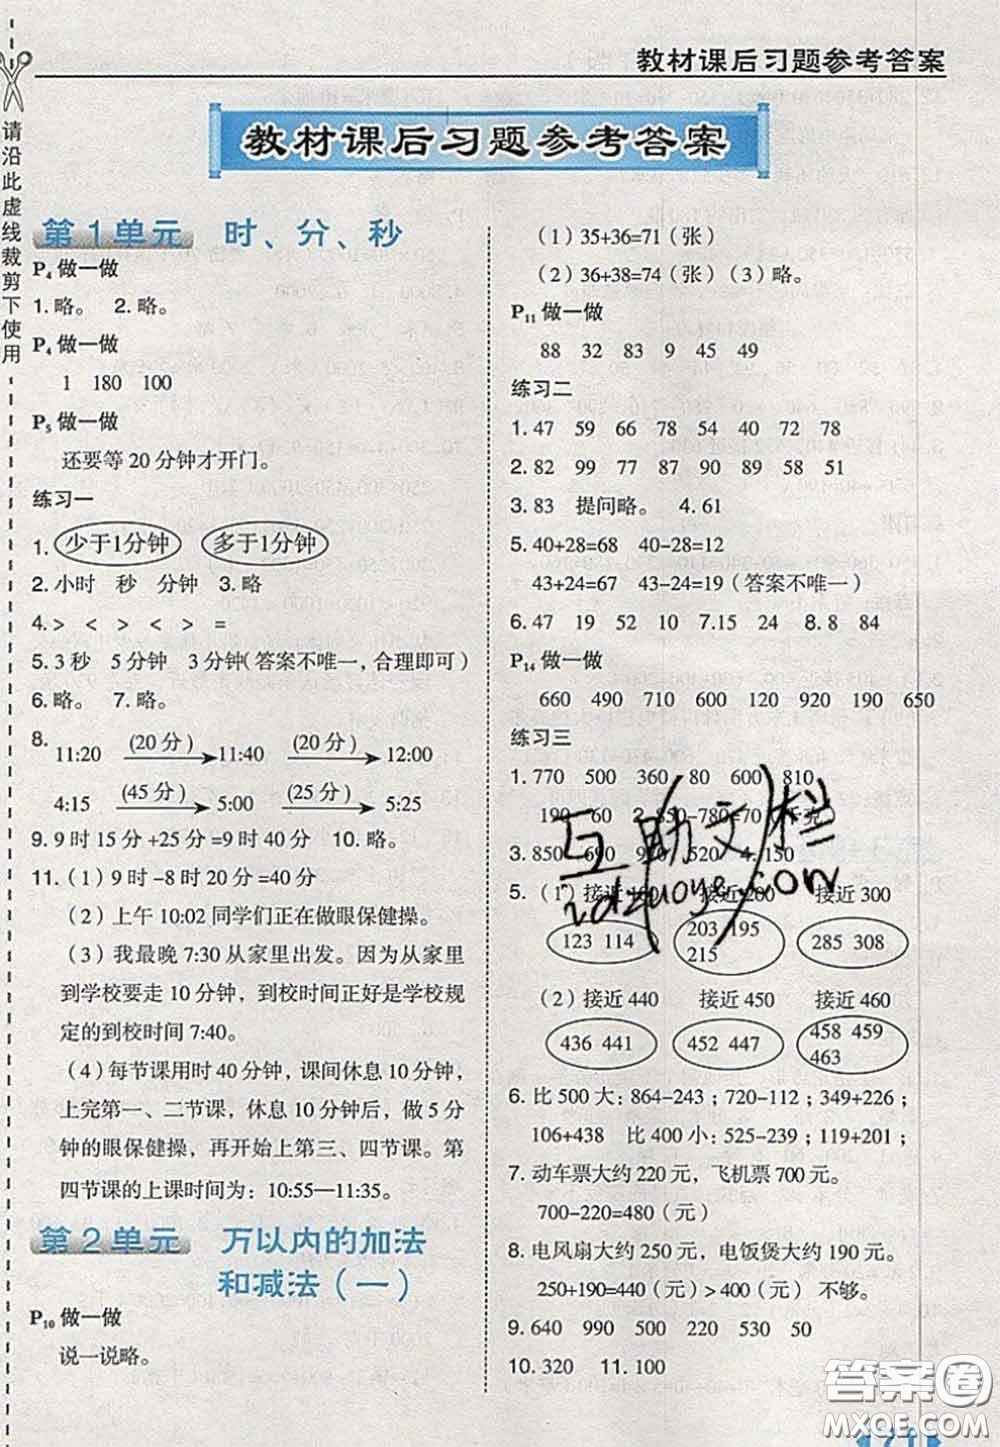 教材课后习题参考答案
教材课后习题参考答案
请沿此虚线裁剪下使用
第1单元 时、分、秒
P4 做一做
1.略。 2.略。
P4 做一做
1 180 100
P5 做一做
还要等20分钟才开门。
练习一
1. 少于1分钟 多于1分钟
2.小时 秒 分钟 3.略
4.> < > < > =
5.3秒 5分钟 3分钟(答案不唯一,合理即可)
6.略。 7.略。
8. 11:20 (20分) 11:40 (20分) 12:00
4:15 (45分) 5:00 (25分) 5:25
9.9时15分+25分=9时40分 10.略。
11.(1)9时-8时20分=40分
(2)上午10:02同学们正在做眼保健操。
(3)我最晚7:30从家里出发。因为从家里
到学校要走10分钟,到校时间正好是学校规
定的到校时间7:40。
(4)每节课用时40分钟,课间休息10分钟,
上完第一、二节课,休息10分钟后,做5分
钟的眼保健操,再开始上第三、四节课。第
四节课的上课时间为:10:55—11:35。
第2单元 万以内的加法
和减法(一)
P10 做一做
说一说略。
(1)35+36=71(张)
(2)36+38=74(张)(3)略。
P11 做一做
88 32 83 9 45 49
练习二
1.47 59 66 78 54 42 72 78
2.82 99 77 80 90 51 58 51
3.83 提问略。 4.61
5.40+28=68 40-28=12
43+24=67 43-24=19(答案不唯一)
6.47 19 52 10 7.15 24 8.8 84
P14 做一做
660 490 710 600 120 920 190 650
练习三
1.770 500 360 80 600 810
190 60 2.850-780=70(千克)
3.850 690 920 520 4.150
5.(1)接近100 接近200 接近300
123 114 203 195 215 285 308
(2)接近440 接近450 接近460
436 441 452 447 458 459 463
6.比500大:864-243;720-112;349+226;
106+438 比400小:525-239;119+201;
7.动车票大约220元,飞机票700元。
700-220=480(元)
8.电风扇大约250元,电饭煲大约190元。
250+190=440(元)>400(元) 不够。
9.640 990 500 290 530 50
10.320 11.100
互助文档
答案圈
MXQE.COM
171